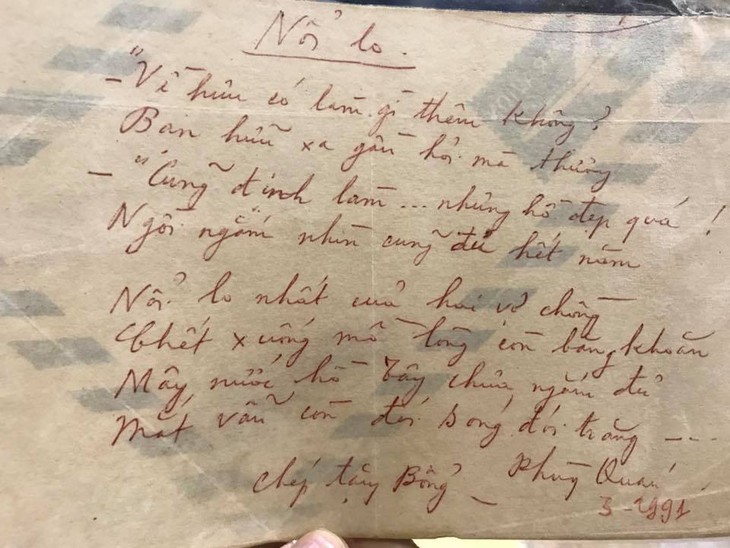 Nỗi lo.
– "Về hưu có làm gì thêm không?
Bạn hữu xa gần hỏi mà thương
– "Cũng định làm... nhưng hồ đẹp quá!
Ngồi ngắm nhìn cũng đủ hết năm
Nỗi lo nhất của hai vợ chồng
Chết xuống mồ lòng còn băng khoăn
Mây nước hồ Tây chưa ngắm đủ
Mắt vẫn còn đói sóng, đói trăng ---
Chép tặng Bổng – Phùng Quán
3-1991